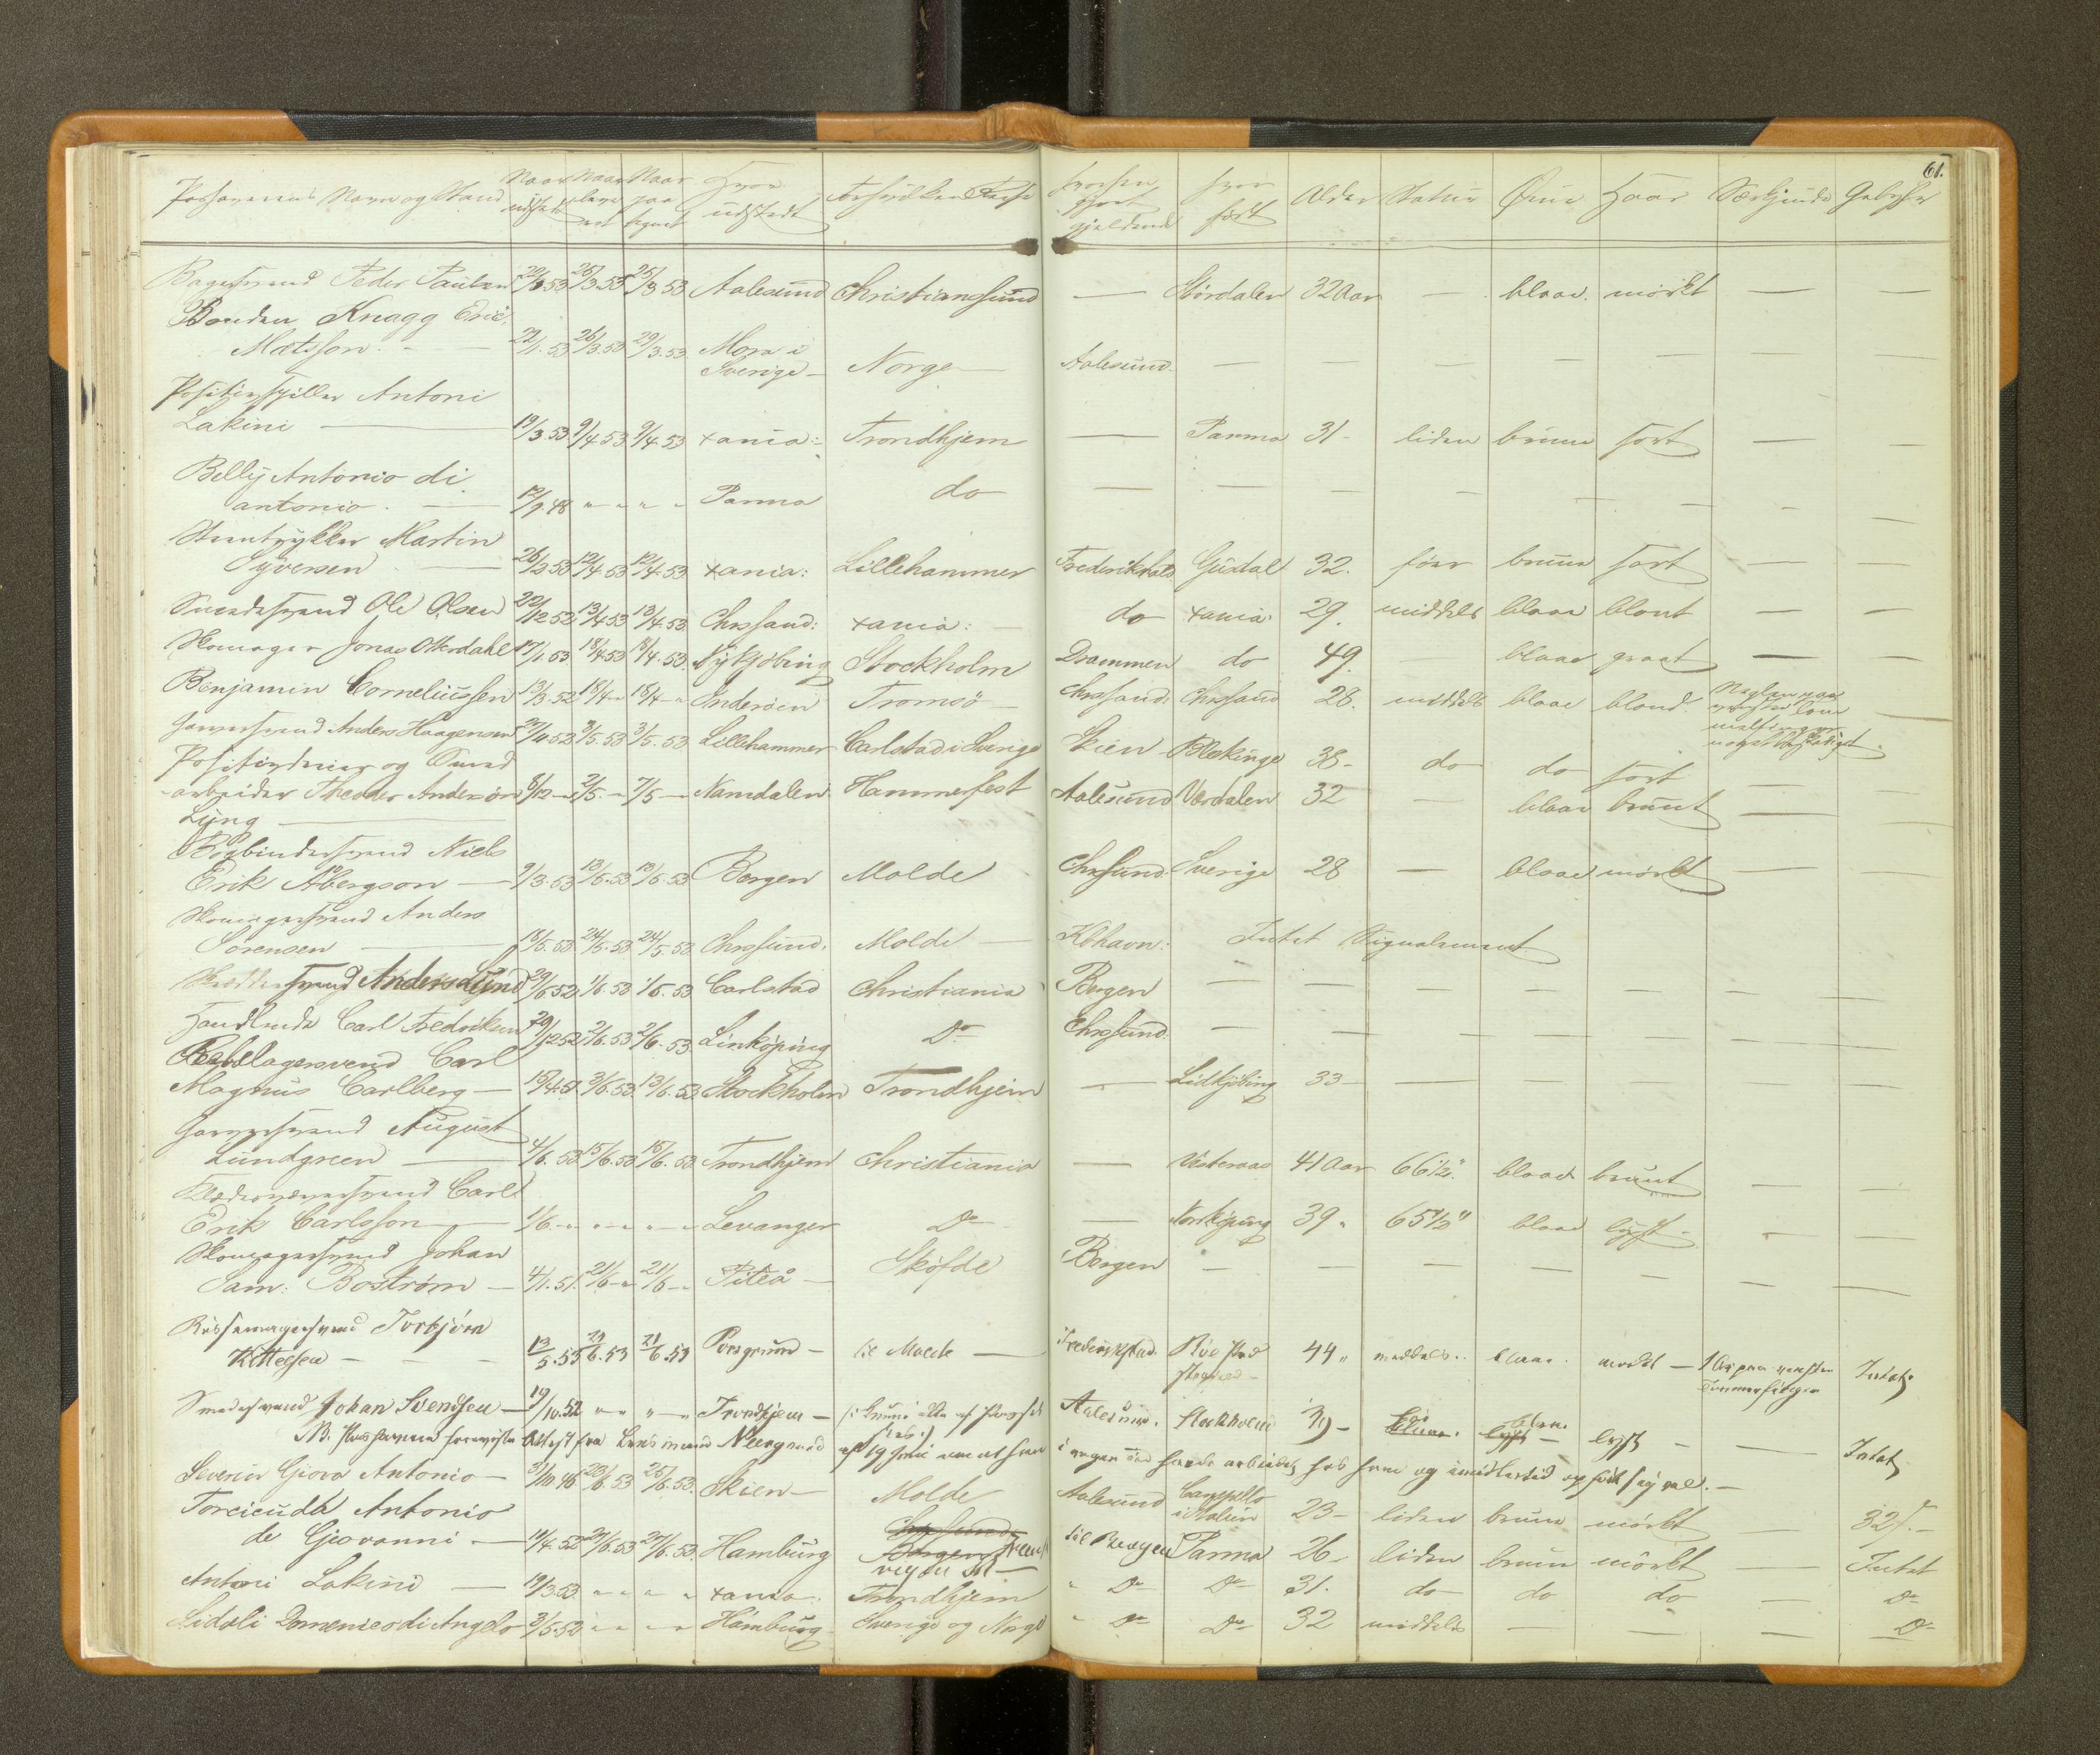 61.
Passagerens Navn og Stand Naar udstedt Naar paa tegnet Hvor udstedt Reise Hvorhen gjort gjeldende Hvor født Alder Statur Øine Haar Særkjende Gebyhr
Bagersvend Peder Paulsen 25/3 53 25/3 53 Aalesund Christianssund — Stördalen 32 Aar — blaae mörkt — —
Bonden Knagg Eric
Matsson — 26/3.53 29/3.53 Mora i Sverige — Norge — Aalesund — — — — — — —
Positivspiller Antoni
Lakini — 19/3 53 9/4 53 9/4 53 xania: Trondhjem — Parma 31 - liden brune sort — —
Belly Antonio di
antonio — 12/9.48 " " " " Parma do — — — — — — — —
Steentrykker Martin
Syversen — 26/3 53 12/4 53 12/4 53 xania: Lillehammer Frederikshald Gusdal 32. før brune sort — —
Smedesvend Ole Olsen 22/12 52 13/4 53 13/4 53 Chrsand: xania: do xania: 29. middels blaae blont — —
Skomager Jonas Otterdahl 17/1 53 18/4 53 18/4 53 Nykjöbing Stockholm Drammen do 49. blaae graat — —
Benjamin Corneliussen 13/3 52 18/4 - 18/4 - Inderöen Tromsö Chrsand: Chrsand 28. middels blaae blond. Neglen paa venstre noget beskadiget —
Garversvend Anders Haagensen 3/5.53 3/5.53 Lillehammer Carlstad i Sverige Skien Blekinge 38 - do do sort —
Positivdreier og Smed
arbeider Theodor Anderson 8/12 - 7/5 - 7/5 - Namdalen Hammerfest Aalesund Værdalen 32 — blaae brunt — —
Ljung —
Bogbindersvend Niels
Erik Åbergson — 9/3.53 13/5.53 13/5.53 Bergen Molde Chrsund. Sverige 28 — blaae mörkt — —
Skomagersvend Anders
Sörensen — 18/5.53 24/5.53 24/5.53 Chrsund. Molde — Kbhavn: Intet Signalement
Anders Lind 29/6 52 1/6.53 1/6.53 Carlstad Christiania Bergen — — — — — — —
Carl Fredriksen 20/12 52 2/6.53 2/6.53 Linköping Do Chrsund. — — — — — — —
Rebslagersvend Carl
Magnus Carlberg — 3/6.53 13/6.53 Stockholm Trondhjem — Lidkjöbing 33 — — — — — —
Garversvend August
Lundgreen — 4/6.53 15/6.53 15/6.53 Trondhjem Christiania — Vesteraas 41 Aar 66 1/2" blaae brunt — —
Klædevæversvend Carl
Erik Carlsson — 1/6 - " " " " Levanger Do — Norköping 39 " 65 1/2" blaae lyst — —
Skomagersvend Johan
Sam: Boström — 4/1.51. 21/6 - 21/6 - Piteå — Sköfde Bergen — — — — — — —
Torbjörn
Kittelsen — — — 13/5.53 21/6.53 21/6.53 Porsgrund — til Molde — Frederikstad. 44 " middels. blaae. mørkt — 1 Ar paa venstre Tommelfinger Intet.
Smedesvend Johan Svendsen — 19/10.52 " " " " Trondhjem — Aalesund. Stockholm 39 — blaae. lyst — Intet
NB. Passageren foreviste Attest fra Lensmand Neergaard af 19 Juni om at han havde arbeidet hos ham og imidlertid opført sig vel. —
Severin Giova Antonio — 3/10 46 23/6.53 25/6.53 Skien — Molde Aalesund i Italien 23 — liden brune mörkt — 32 s. —
Torcicuda Antonio
de Giovanni — 14/4.52 27/6.53 27/6.53. Hamburg Chrsund Bergen til Bergen Parma 26 — liden brune mörkt — Intet
Antoni Lakini — 19/3 53 " " " " xania. Trondhjem " Do Do 31. do do do — Do
Sidoli Domenico di Angelo 3/5.52 " " " " Hamburg Sverige og Norge " Do Do 32 middels — — — Do